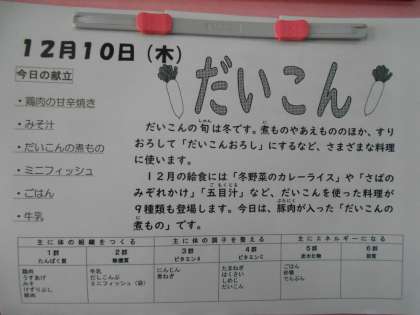 12月10日（木）
今日の献立
・鶏肉の甘辛焼き
・みそ汁
・だいこんの煮もの
・ミニフィッシュ
・ごはん
・牛乳
だいこん
だいこんの旬は冬です。煮ものやあえもののほか、すり
おろして「だいこんおろし」にするなど、さまざまな料理
に使います。
12月の給食には「冬野菜のカレーライス」や「さばの
みぞれかけ」「五目汁」など、だいこんを使った料理が
9種類も登場します。今日は、豚肉が入った「だいこんの
煮もの」です。
主に体の組織をつくる 主に体の調子を整える 主にエネルギーになる
1群 2群 3群 4群 5群 6群
たんぱく質 無機質 ビタミンA ビタミンC 炭水化物 脂質
鶏肉 牛乳 にんじん たまねぎ ごはん
うすあげ だしこんぶ 青ねぎ はくさい 砂糖
みそ ミニフィッシュ（袋） しめじ でんぷん
けずりぶし だいこん
豚肉